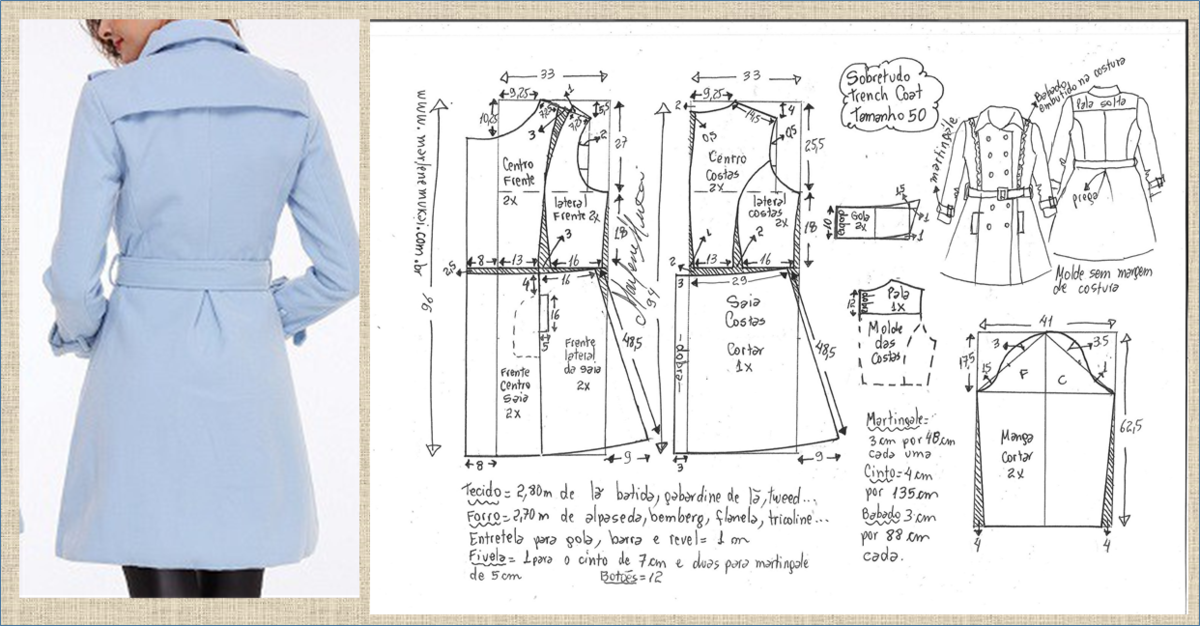 www.marlenemukai.com.br
33
9,25
10,25
1
7,5
7,5
5,5
3
2
27
Centro
Frente
2x
lateral
Frente 2x
18
3
2,5
8
13
16
4
16
16
5
96
Frente
Centro
Saia
2x
Frente
lateral
da saia
2x
48,5
8
9
Marlene Mukai
33
2
9,25
4
14,5
0,5
0,5
25,5
Centro
Costas
2x
lateral
costas
2x
18
1
2
2
13
16
3
29
94
Saia
Costas
Cortar
1x
dobra
48,5
3
9
Sobretudo
Trench Coat
Tamanho 50
martingale
Babado
embutido na costura
Pala solta
prega
Molde sem margem
de costura
dobra
Gola
2x
1
1
Pala
1x
dobra
Molde
das
Costas
41
17,5
3
3,5
1
F
C
62,5
Manga
Cortar
2x
4
4
Martingale=
3 cm por 48 cm
cada uma
Cinto= 4 cm
por 135 cm
Babado 3 cm
por 88 cm
cada.
Tecido= 2,80 m de lã batida, gabardine de lã, tweed...
Forro= 2,70 m de alpaseda, bemberg, flanela, tricoline...
Entretela para gola, barra e revel= 1 m
Fivela= 1 para o cinto de 7 cm e duas para martingale
de 5 cm Botões=12